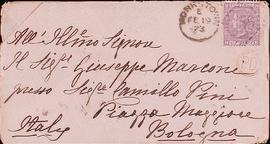 All' Illmo Signore
Il Sigr Giuseppe Marconi
presso Sigr Camillo Pini
Piazza Maggiore
Bologna
Italy
FE 19
73